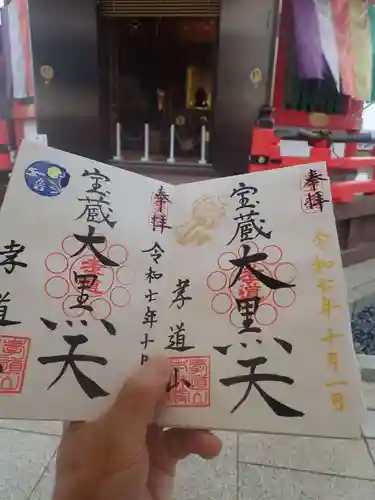 奉拝
令和七年十月一日
宝蔵
大黒天
孝道山
奉拝
令和七年十
宝蔵
大黒天
孝道
孝道山